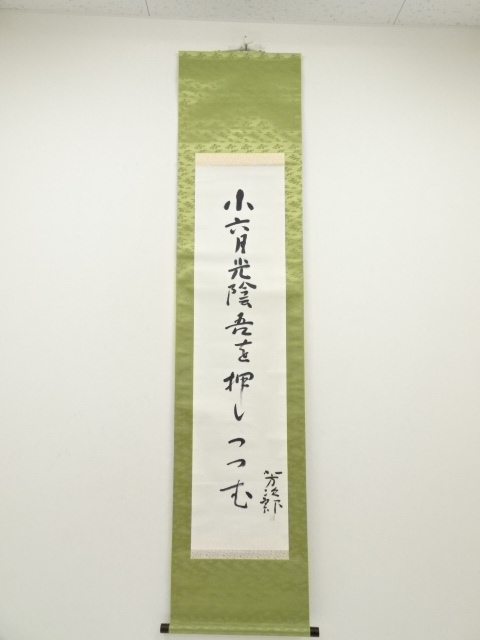 小六月光陰吾を押しつつむ